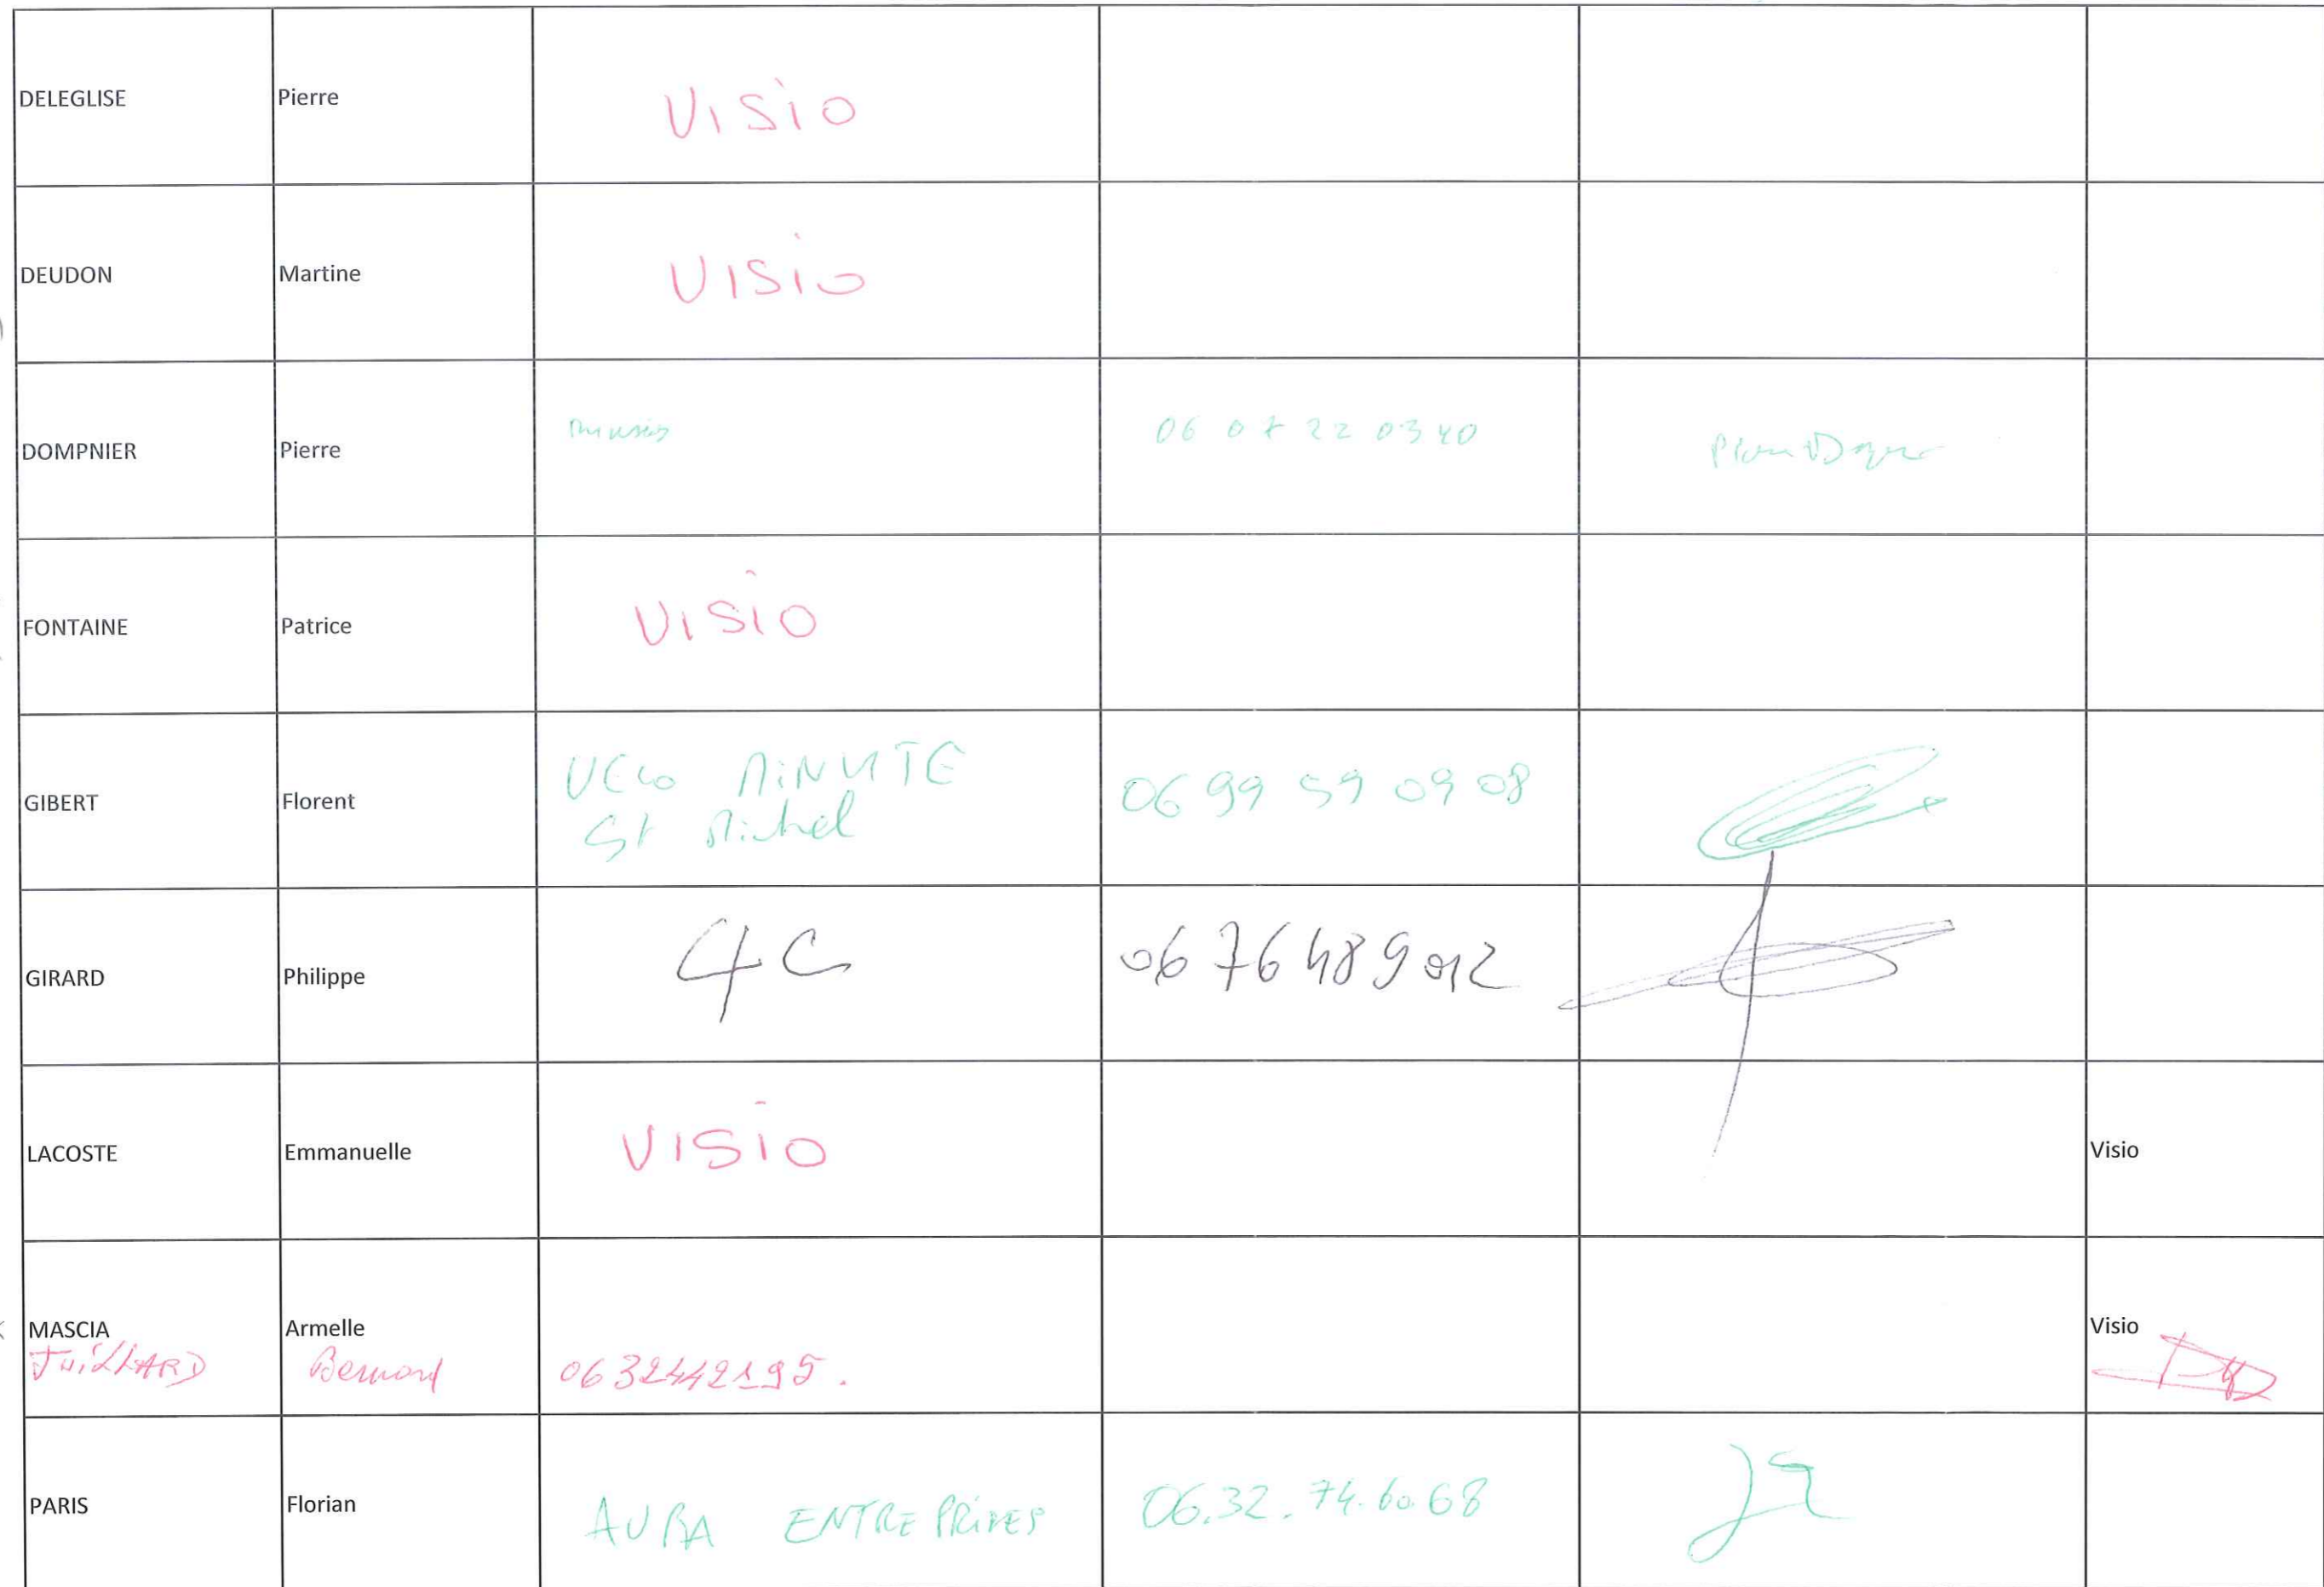 DELEGLISE Pierre VISIO
DEUDON Martine VISIO
DOMPNIER Pierre 06 07 22 03 40
FONTAINE Patrice VISIO
GIBERT Florent VELO MINUTE 06 99 59 09 08
St Michel
GIRARD Philippe 4C 06 76 48 9 012
LACOSTE Emmanuelle VISIO Visio
MASCIA Armelle Visio
JUILLARD Bernard 0632442195.
PARIS Florian AURA ENTREPRISES 06.32.74.60.68